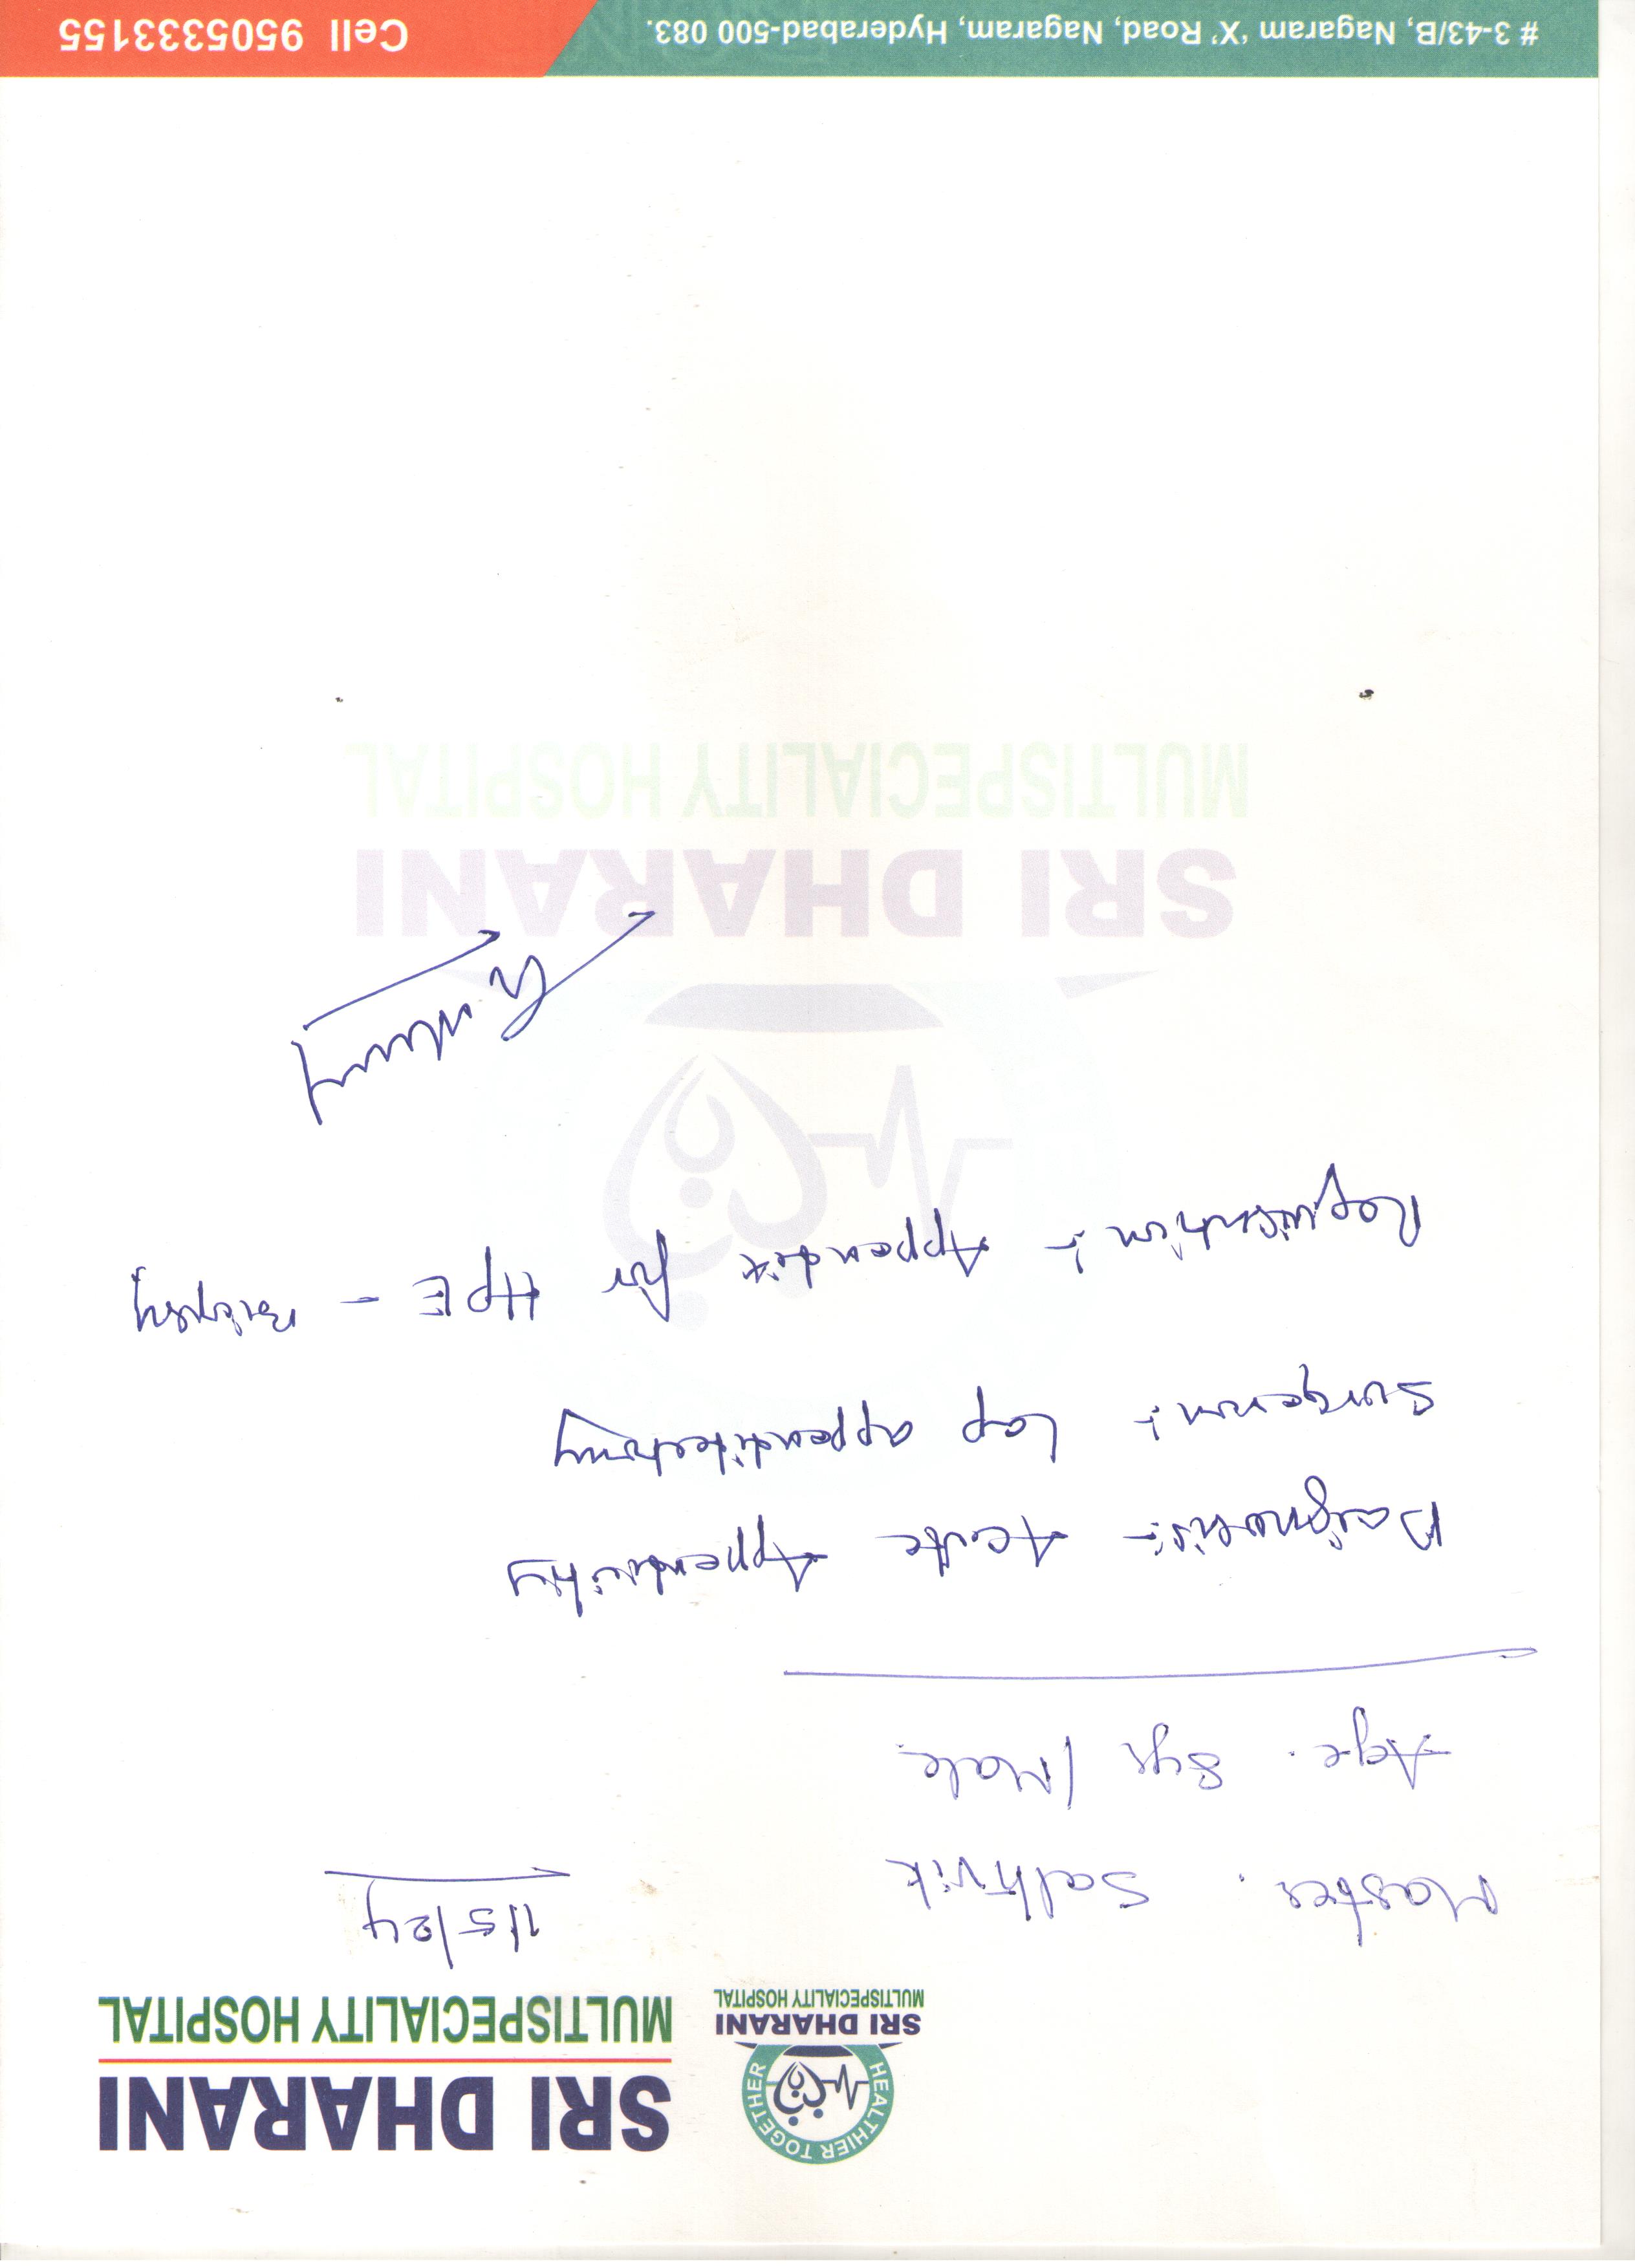 HEALTHIER TOGETHER
SRI DHARANI
MULTISPECIALITY HOSPITAL
SRI DHARANI
MULTISPECIALITY HOSPITAL
1/5/24
Master. Sathvik
Age. 8yr /Male.
Daignosis:- Acute Appendicitis
Surgery:- Lap appendicectomy
Requisition:- Appendix for HPE - Biopsy
SRI DHARANI
MULTISPECIALITY HOSPITAL
# 3-43/B, Nagaram 'X' Road, Nagaram, Hyderabad-500 083.
Cell 9505333155